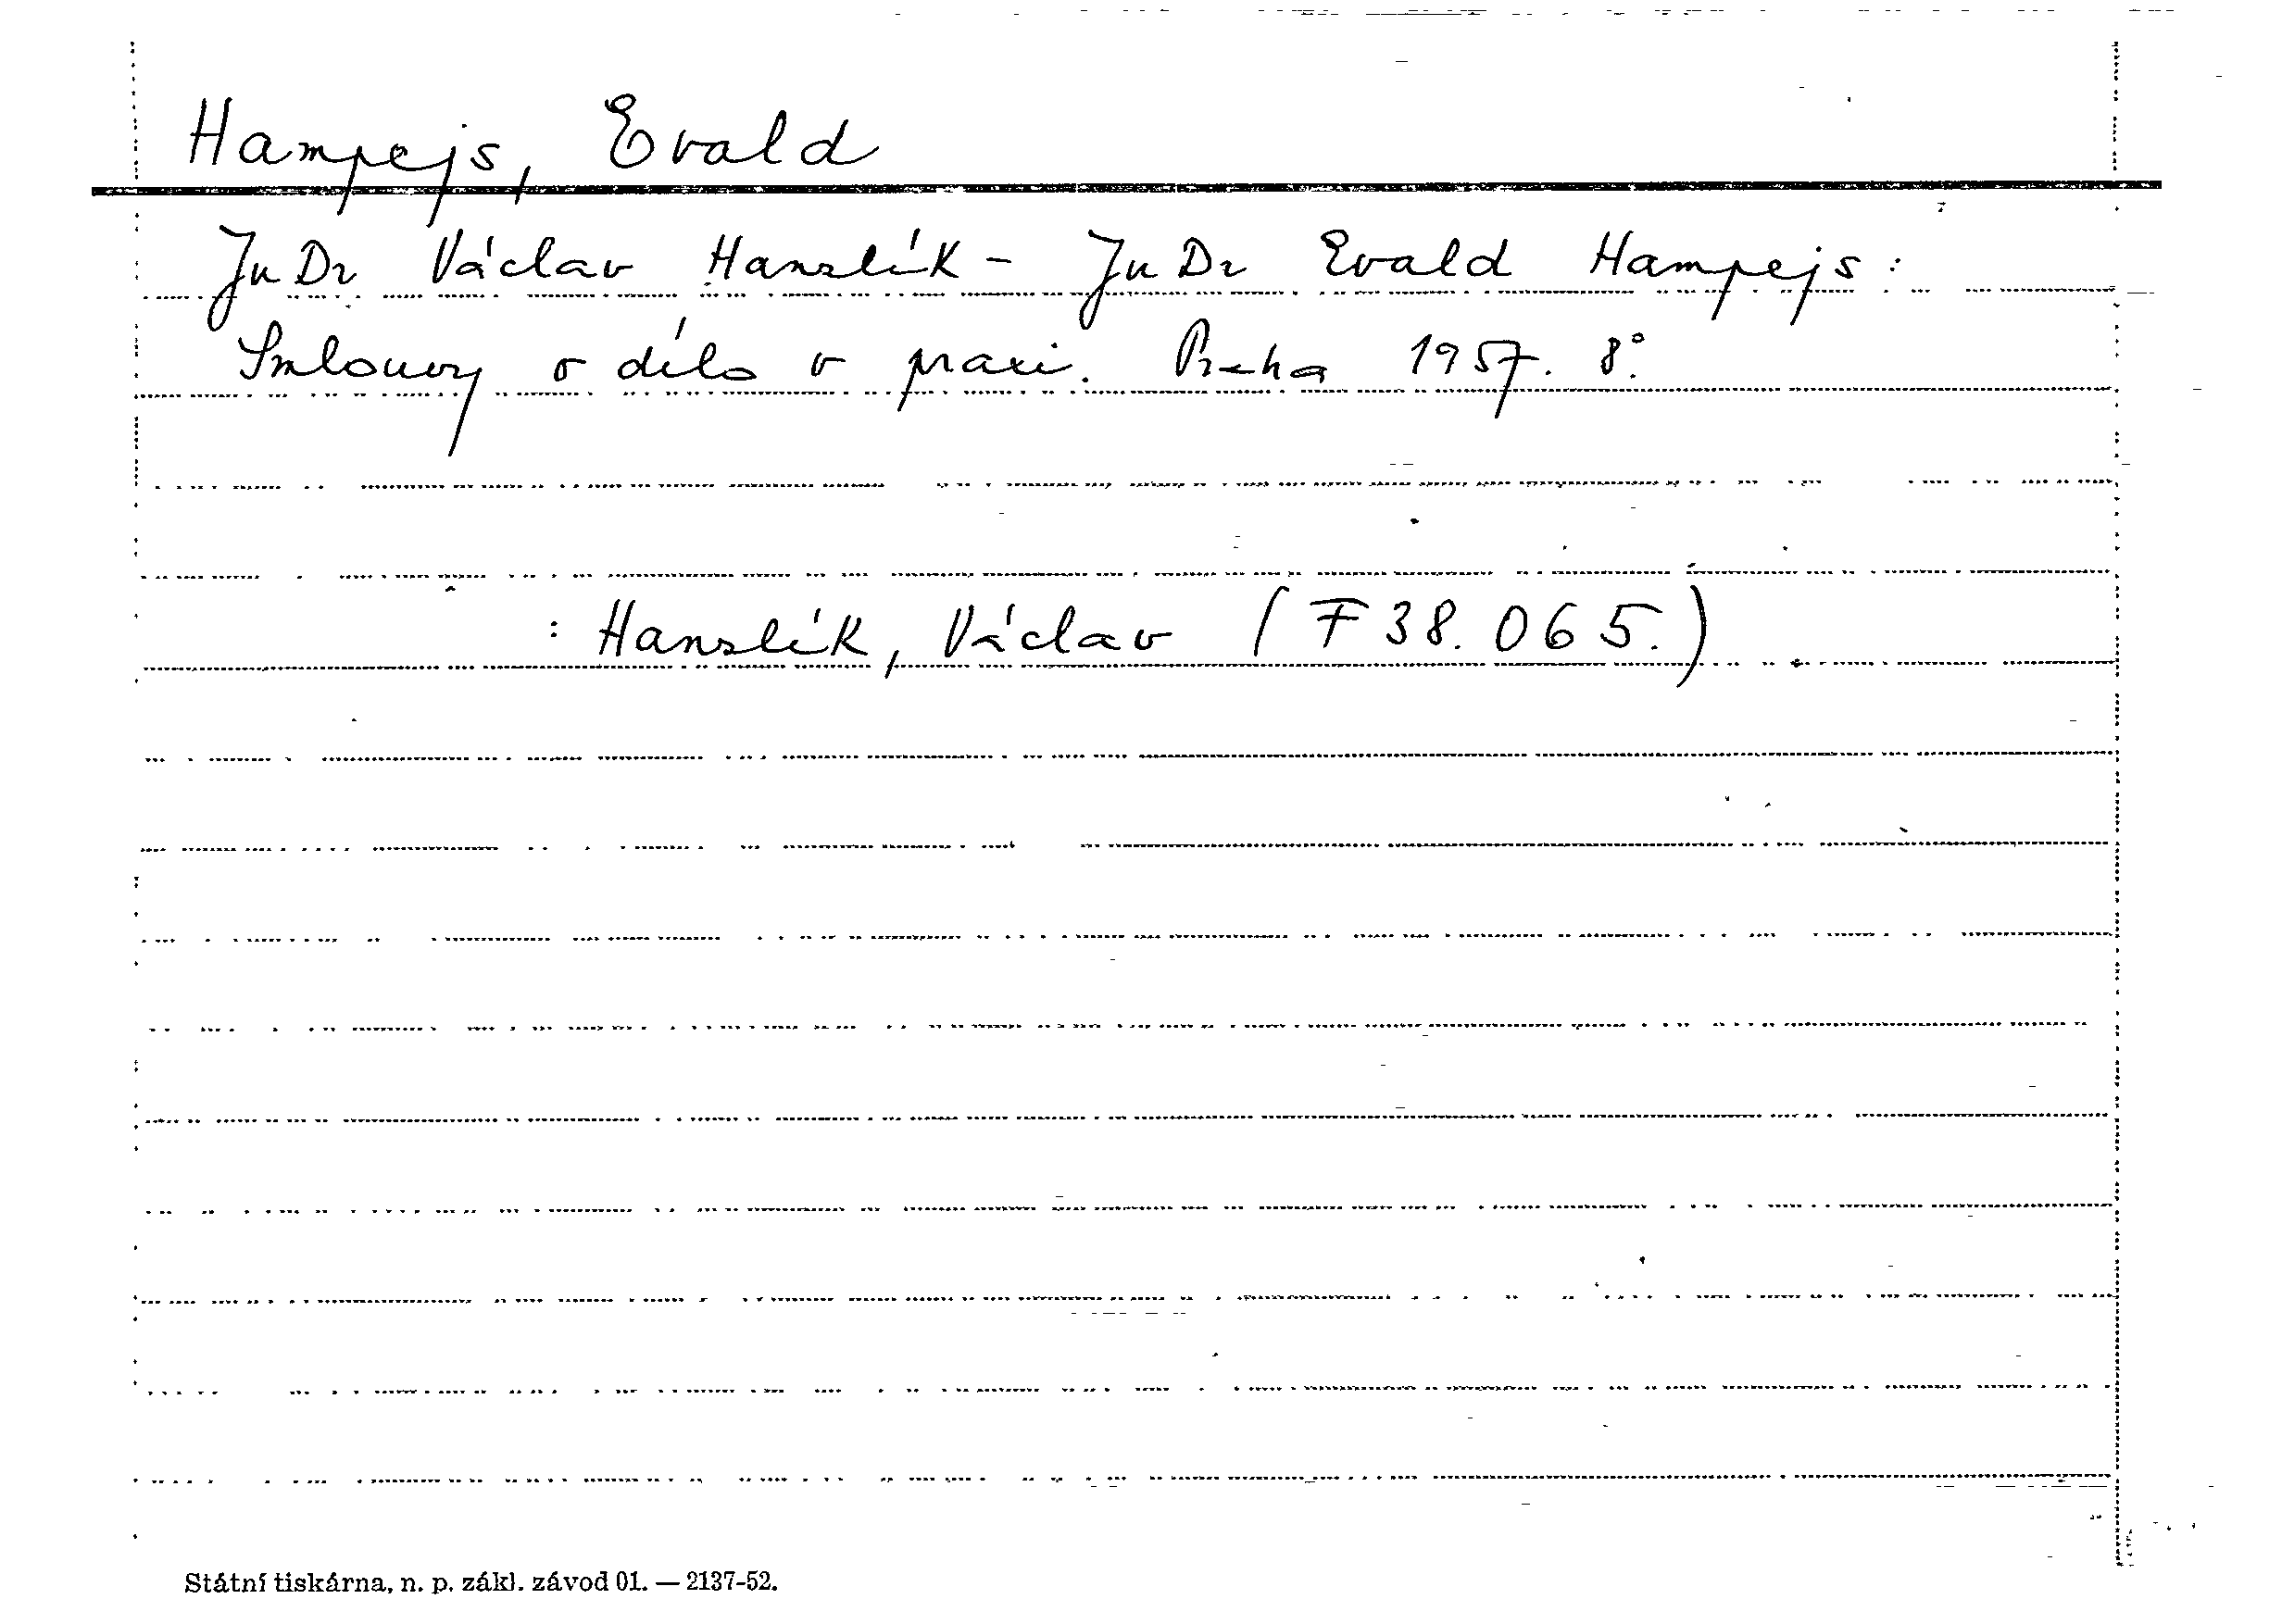 Hampejs, Evald
JuDr Václav Hanzlík - JuDr Evald Hampejs:
Smlouvy o dílo v praxi. Praha 1957. 8°.
: Hanzlík, Václav (F 38.065.)
Státní tiskárna, n. p. zákl. závod 01. — 2137-52.